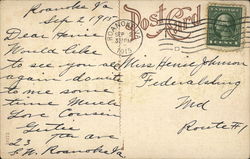 Roanoke Va
Sep 2, 1915
Dear Hensie
Would like
to see you all
again. donate
to me some
time Much
Love Cousin
Gertie
23 7th ave
S.W. Roanoke Va
Post Card
ROANOKE
SEP
1915
Miss Hensie Johnson
Federalsburg
Md
Route #1